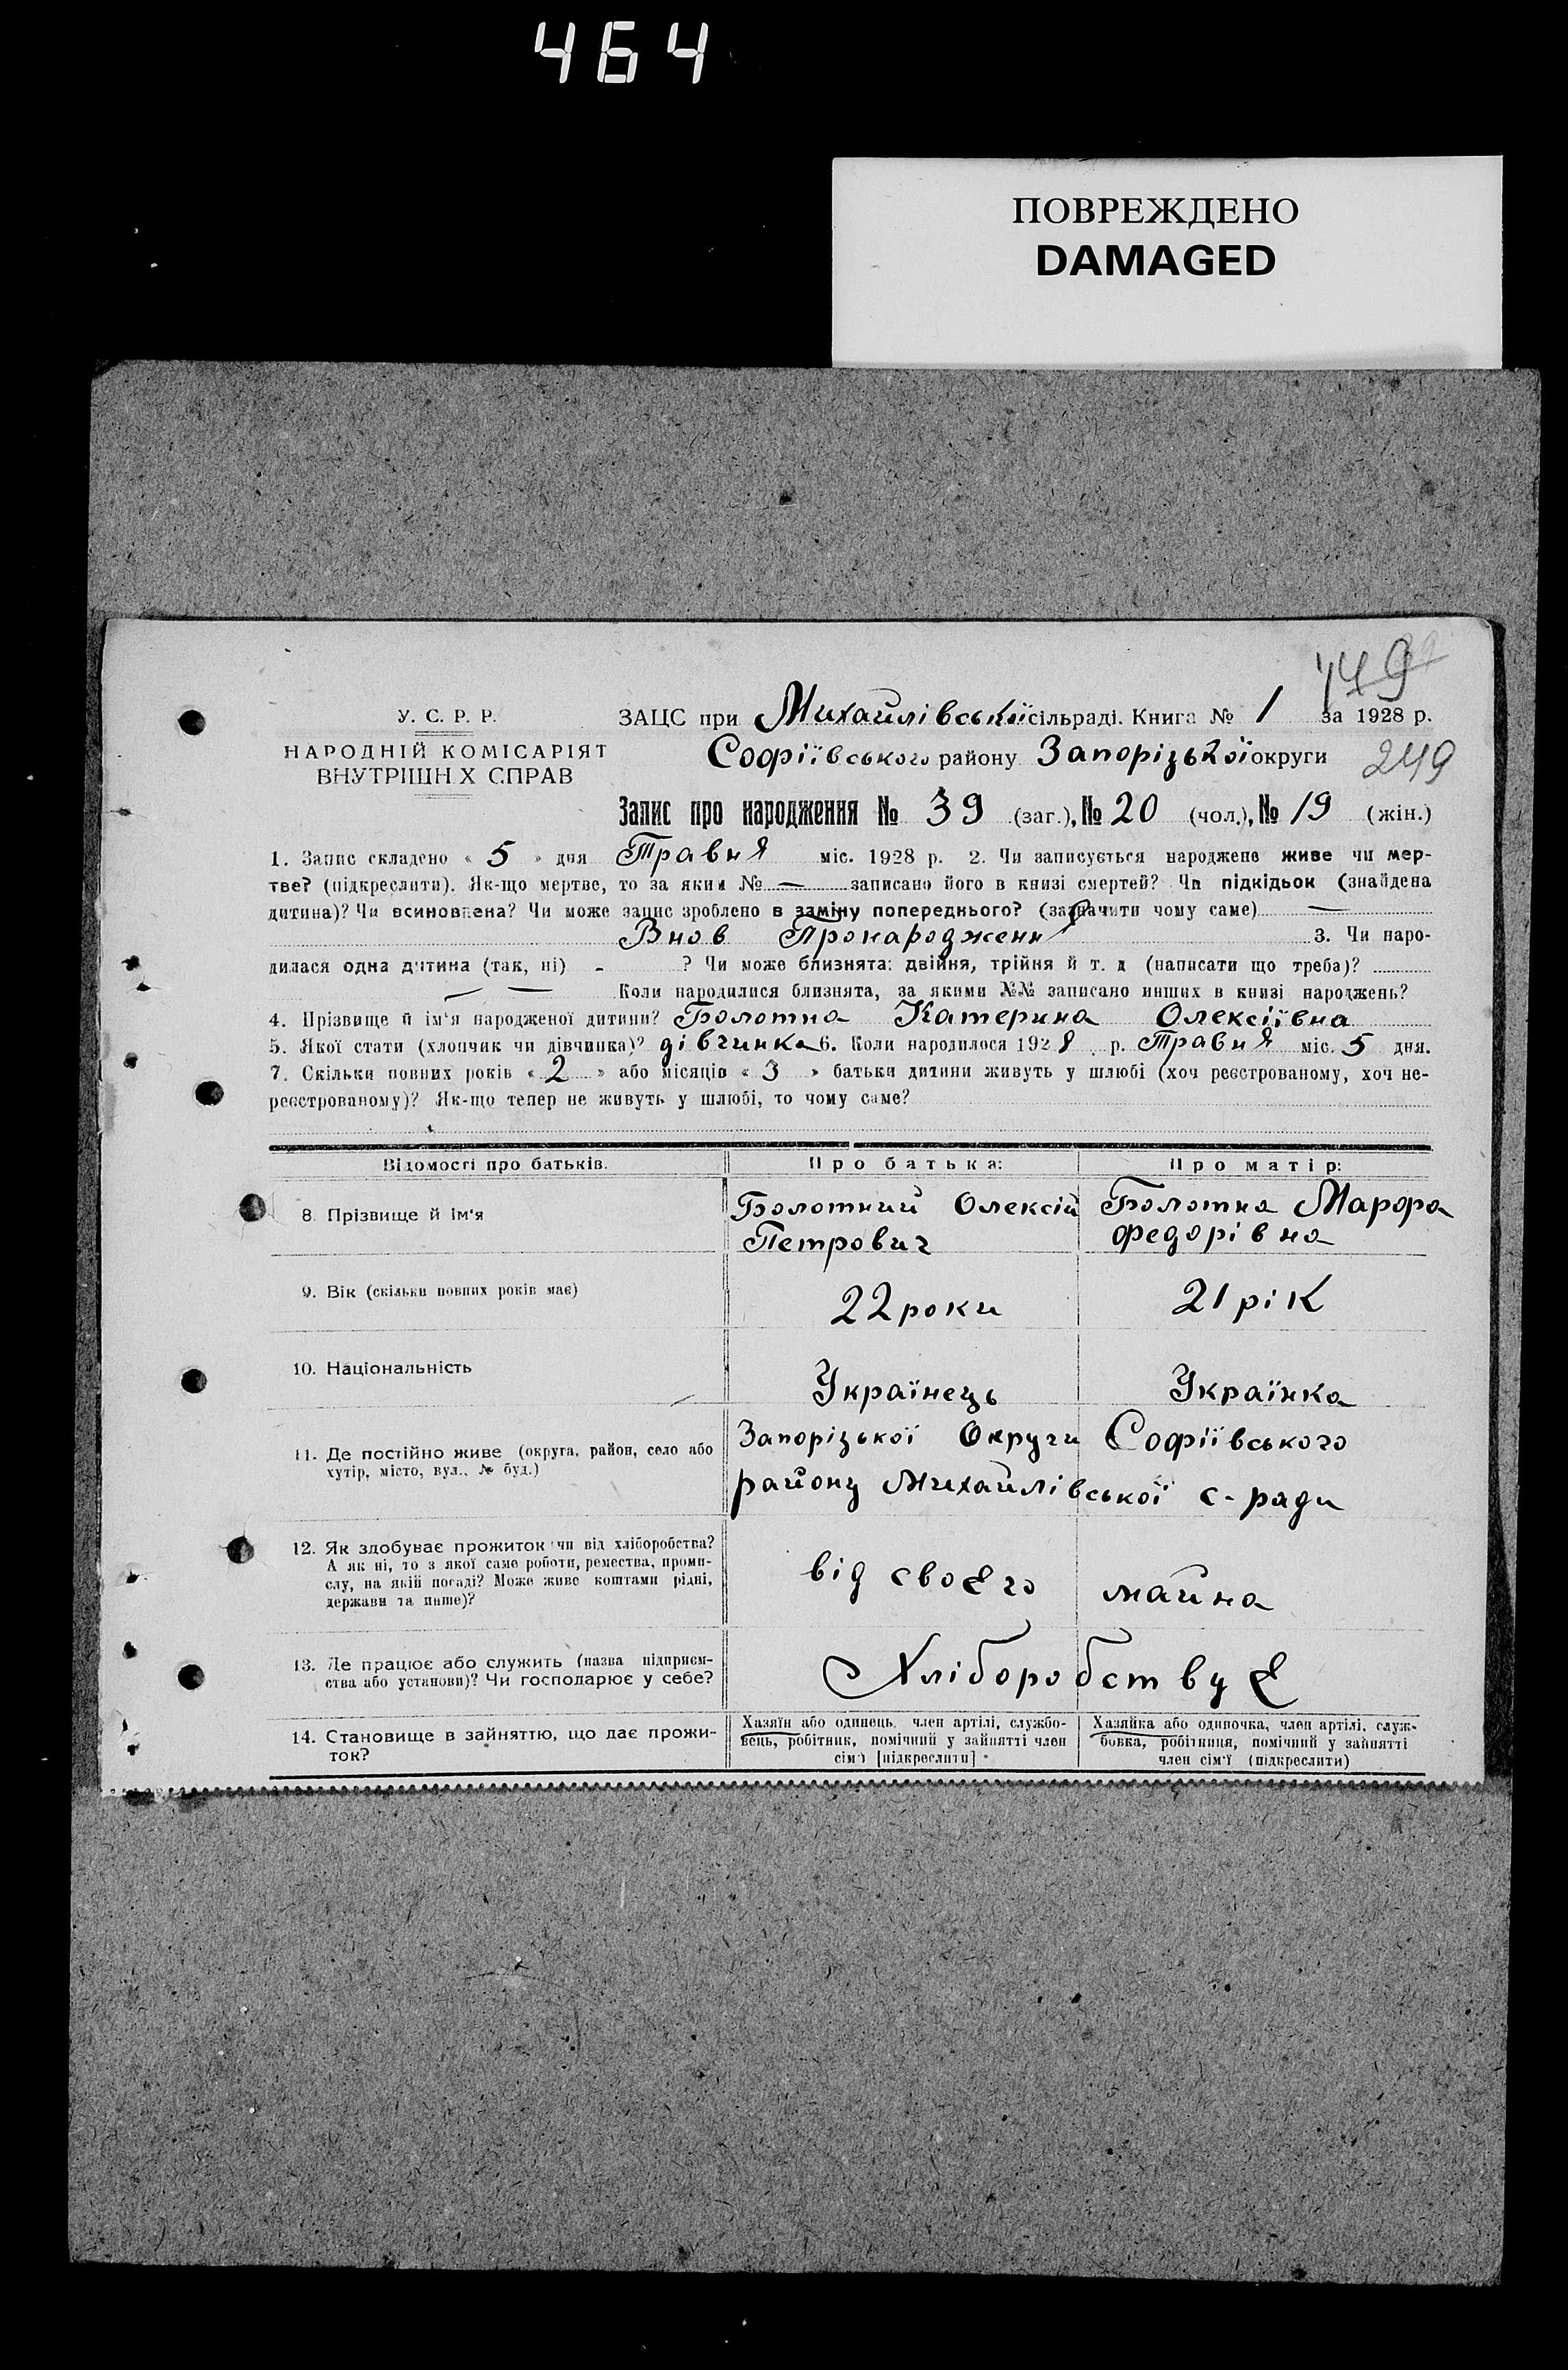 464
ПОВРЕЖДЕНО
DAMAGED
749
У. С. Р. Р.
НАРОДНІЙ КОМІСАРІЯТ
ВНУТРІШН Х СПРАВ
ЗАЦС при Михайлівській сільраді. Книга № 1 за 1928 р.
Софіївського району Запорізької округи
249
Запис про народження № 39 (заг.), № 20 (чол.), № 19 (жін.)
1. Запис складено « 5 » дня Травня міс. 1928 р. 2. Чи записується народжене живе чи мер-
тве? (підкреслити). Як-що мертве, то за яким № — записано його в книзі смертей? Чи підкідьок (знайдена
дитина)? Чи всиновлена? Чи може запис зроблено в заміну попереднього? (зазначити чому саме) —
Внов Пронародження 3. Чи наро-
дилася одна дитина (так, ні) - ? Чи може близнята: двійня, трійня й т. д (написати що треба)?
— — Коли народилися близнята, за якими №№ записано инших в книзі народжень?
4. Прізвище й ім'я народженої дитини? Болотна Катерина Олексіївна
5. Якої стати (хлопчик чи дівчинка)? дівчинка 6. Коли народилося 1928 р. Травня міс. 5 дня.
7. Скільки повних років « 2 » або місяців « 3 » батьки дитини живуть у шлюбі (хоч реєстрованому, хоч не-
реєстрованому)? Як-що тепер не живуть у шлюбі, то чому саме?
Відомості про батьків. Про батька: Про матір:
8. Прізвище й ім'я
Болотний Олексій
Петрович
Болотна Марфа
Федорівна
9. Вік (скільки повних років має) 22 роки 21 рік
10. Національність Українець Українка
11. Де постійно живе (округа, район, село або
хутір, місто, вул., № буд.)
Запорізької Округи Софіївського
району Михайлівської с-ради
12. Як здобуває прожиток чи від хліборобства?
А як ні, то з якої саме роботи, ремества, проми-
слу, на якій посаді? Може живе коштами рідні,
держави та инше)?
від своєго майна
13. Де працює або служить (назва підприєм-
ства або установи)? Чи господарює у себе?
Хліборобствує
14. Становище в зайняттю, що дає прожи-
ток?
Хазяїн або одинець, член артілі, службо-
вець, робітник, помічний у зайнятті член
сім'ї [підкреслити]
Хазяйка або одиночка, член артілі, служ-
бовка, робітниця, помічний у зайнятті
член сім'ї (підкреслити)